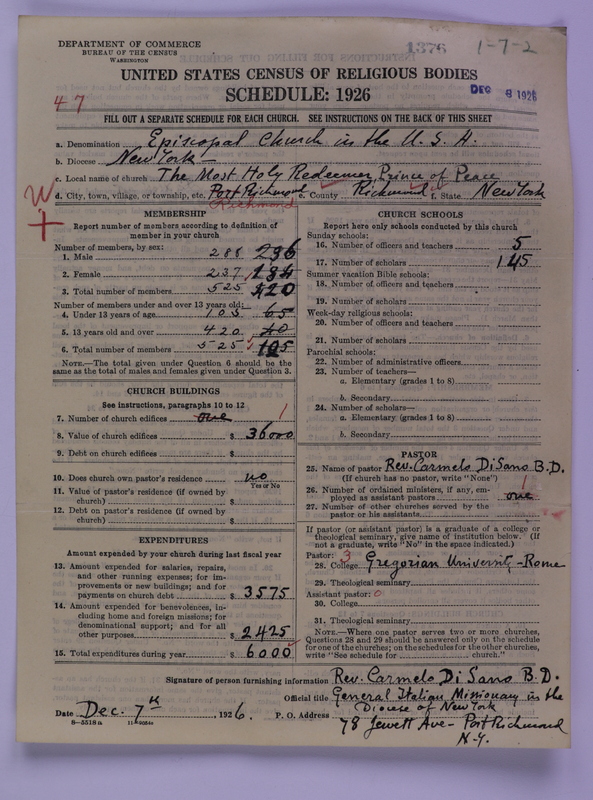 DEPARTMENT OF COMMERCE
BUREAU OF THE CENSUS
WASHINGTON
1376
1-7-2
UNITED STATES CENSUS OF RELIGIOUS BODIES
SCHEDULE: 1926
DEC 8 1926
47
FILL OUT A SEPARATE SCHEDULE FOR EACH CHURCH. SEE INSTRUCTIONS ON THE BACK OF THIS SHEET
a. Denomination Episcopal Church in the U. S. A.
b. Diocese New York
c. Local name of church The Most Holy Redeemer Prince of Peace
d. City, town, village, or township, etc. Port Richmond e. County Richmond f. State New York
Richmond
W
+
MEMBERSHIP
Report number of members according to definition of member in your church
Number of members, by sex:
1. Male 288 236
2. Female 237 184
3. Total number of members 525 420
Number of members under and over 13 years old:
4. Under 13 years of age 105 65
5. 13 years old and over 420 40
6. Total number of members 525 105
NOTE.—The total given under Question 6 should be the same as the total of males and females given under Question 3.
CHURCH BUILDINGS
See instructions, paragraphs 10 to 12
7. Number of church edifices one 1
8. Value of church edifices $ 36000
9. Debt on church edifices $
10. Does church own pastor's residence no
Yes or No
11. Value of pastor's residence (if owned by church) $
12. Debt on pastor's residence (if owned by church) $
EXPENDITURES
Amount expended by your church during last fiscal year
13. Amount expended for salaries, repairs, and other running expenses; for improvements or new buildings; and for payments on church debt $ 3575
14. Amount expended for benevolences, including home and foreign missions; for denominational support; and for all other purposes $ 2425
15. Total expenditures during year $ 6000
CHURCH SCHOOLS
Report here only schools conducted by this church
Sunday schools:
16. Number of officers and teachers 5
17. Number of scholars 145
Summer vacation Bible schools:
18. Number of officers and teachers
19. Number of scholars
Week-day religious schools:
20. Number of officers and teachers
21. Number of scholars
Parochial schools:
22. Number of administrative officers
23. Number of teachers—
a. Elementary (grades 1 to 8)
b. Secondary
24. Number of scholars—
a. Elementary (grades 1 to 8)
b. Secondary
PASTOR
25. Name of pastor Rev. Carmelo DiSano B.D.
(If church has no pastor, write "None")
26. Number of ordained ministers, if any, employed as assistant pastors one 1
27. Number of other churches served by the pastor or his assistants
If pastor (or assistant pastor) is a graduate of a college or theological seminary, give name of institution below. (If not a graduate, write "No" in the space indicated.)
Pastor: 3
28. College Gregorian University - Rome
29. Theological seminary
Assistant pastor: 0
30. College
31. Theological seminary
NOTE.—Where one pastor serves two or more churches, Questions 28 and 29 should be answered only on the schedule for one of the churches; on the schedules for the other churches, write "See schedule for church."
Signature of person furnishing information Rev. Carmelo Di Sano B.D.
Official title General Italian Missionary in the
Diocese of New York
Date Dec. 7th, 1926. P. O. Address 78 Jewett Ave - Port Richmond
N.Y.
8-5518a